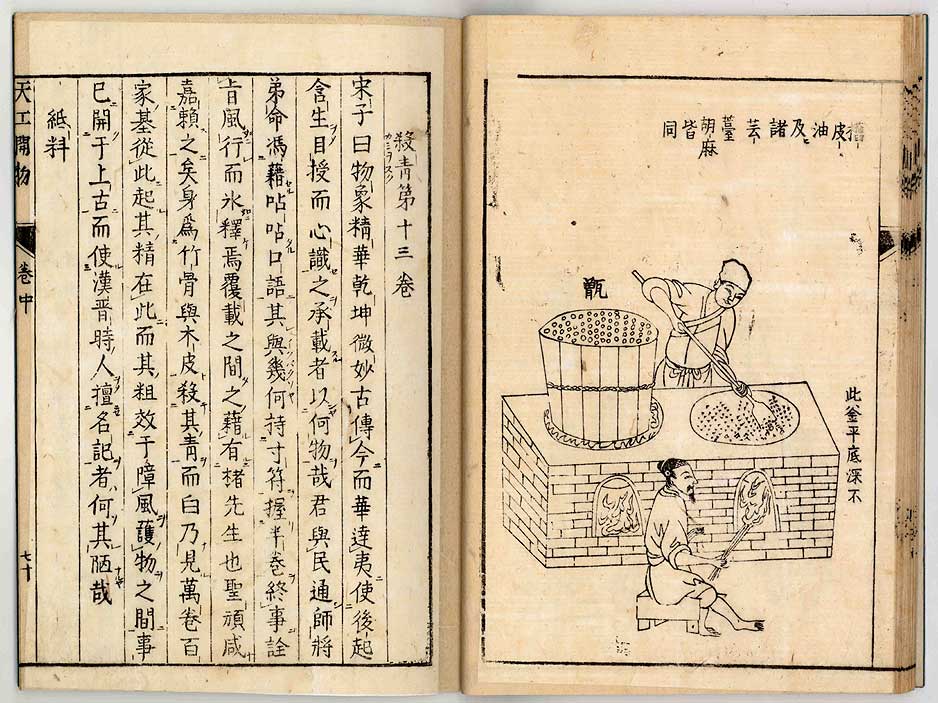 皮油及諸芸薹胡麻皆同
此釜平底深不
甑
殺青第十三卷
宋子曰物象精華乾坤微妙古傳今而華達夷使後起
含生目授而心識之承載者以何物哉君與民通師將
弟命馮藉呫呫口語其與幾何持寸符握半卷終事詮
旨風行而氷釋焉覆載之間之藉有楮先生也聖頑咸
嘉賴之矣身爲竹骨與木皮殺其青而白乃見萬卷百
家基從此起其精在此而其粗效于障風護物之間事
已開于上古而使漢晉時人擅名記者何其陋哉
紙料
天工開物
卷中
七十